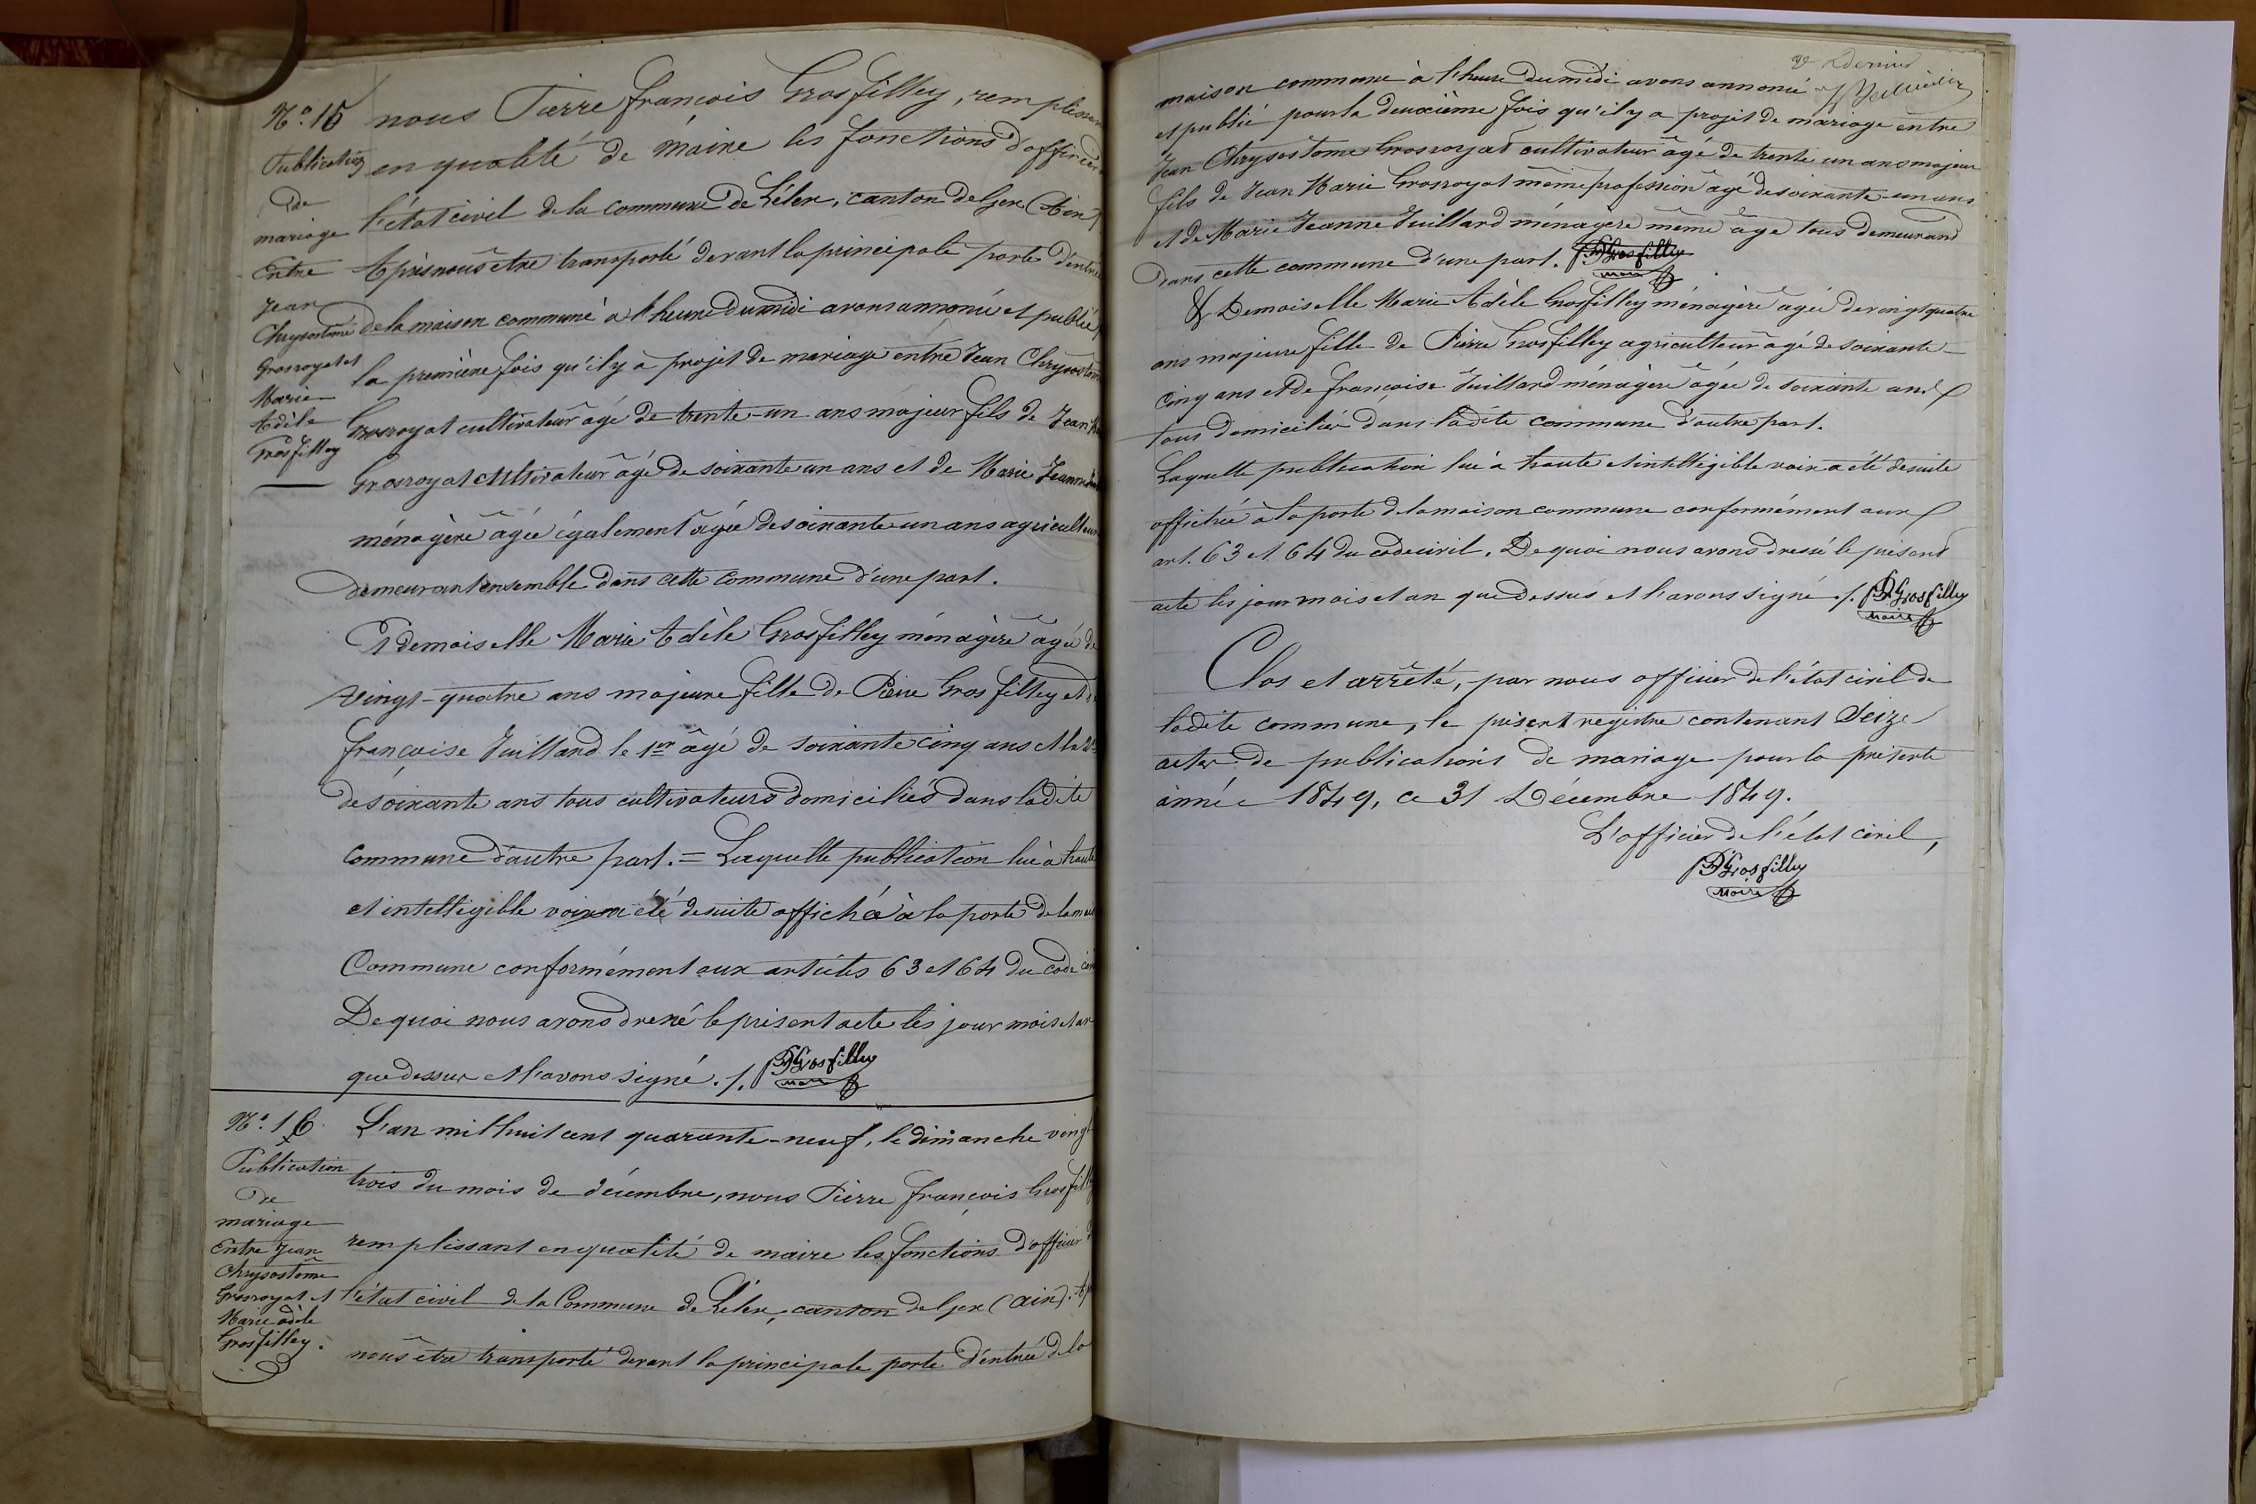 N.° 15
Publication
de
mariage
Entre
Jean
Chrysostome
Grosroyat et
Marie
Adèle
Grosfilley
nous Pierre françois Grosfilley, remplissan
en qualité de maire les fonctions d'officier
l'état civil de la commune de Lélex, canton de Gex (Ain)
Après nous être transporté devant la principale porte d'entré
de la maison commune à l'heure du midi avons annoncé et publié
la première fois qu'il y a projet de mariage entre Jean Chrysostom
Grosroyat cultivateur âgé de trente-un ans majeur fils de Jean
Grosroyat cultivateur âgé de soixante un ans et de Marie Jeanne
ménagère âgée également âgée de soixante un ans agriculteur
demeurant ensemble dans cette commune d'une part.
Et demoiselle Marie Adèle Grosfilley ménagère âgée de
vingt-quatre ans majeure fille de Pierre Grosfilley et d
françoise Juillard le 1er âgé de soixante cinq ans et la 2e
de soixante ans tous cultivateurs domiciliés dans ladite
commune d'autre part. = Laquelle publication lue à haute
et intelligible voix a été de suite affichée à la porte de la mai
Commune conformément aux articles 63 et 64 du code civ
De quoi nous avons dressé le présent acte les jour mois et an
que dessus et l'avons signé ./. PFGrosfilley
Maire
N.° 16
Publication
de
mariage
Entre Jean
Chrysostome
Grosroyat et
Marie adèle
Grosfilley.
L'an mil huit cent quarante-neuf, le dimanche vingt
trois du mois de décembre, nous Pierre françois Grosfill
remplissant en qualité de maire les fonctions d'officier d
l'état civil de la Commune de Lélex, canton de Gex (ain). Ap
nous être transporté devant la principale porte d'entrée de la
maison commune à l'heure du midi avons annoncé
et publié pour la deuxième fois qu'il y a projet de mariage entre
Jean Chrysostome Grosroyat cultivateur âgé de trente un ans majeur
fils de Jean Marie Grosroyat même profession âgé de soixante-un ans
et de Marie Jeanne Juillard ménagère même âge tous demeurand
dans cette commune d'une part. PFGrosfilley
Maire
& Demoiselle Marie Adèle Grosfilley ménagère âgée de vingt quatre
ans majeure fille de Pierre Grosfilley agriculteur âgé de soixante
cinq ans et de françoise Juillard ménagère âgée de soixante ans
tous domiciliés dans ladite commune d'autre part.
Laquelle publication lue à haute et intelligible voix a été de suite
affichée à la porte de la maison commune conformément aux
art. 63 et 64 du code civil. De quoi nous avons dressé le présent
acte les jour mois et an que dessus et l'avons signé ./. PFGrosfilley
Maire
Clos et arrêté, par nous officier de l'état civil de
ladite commune, le présent registre contenant Seize
actes de publications de mariage pour la présente
année 1849, ce 31 Décembre 1849.
L'officier de l'état civil,
PFGrosfilley
Maire